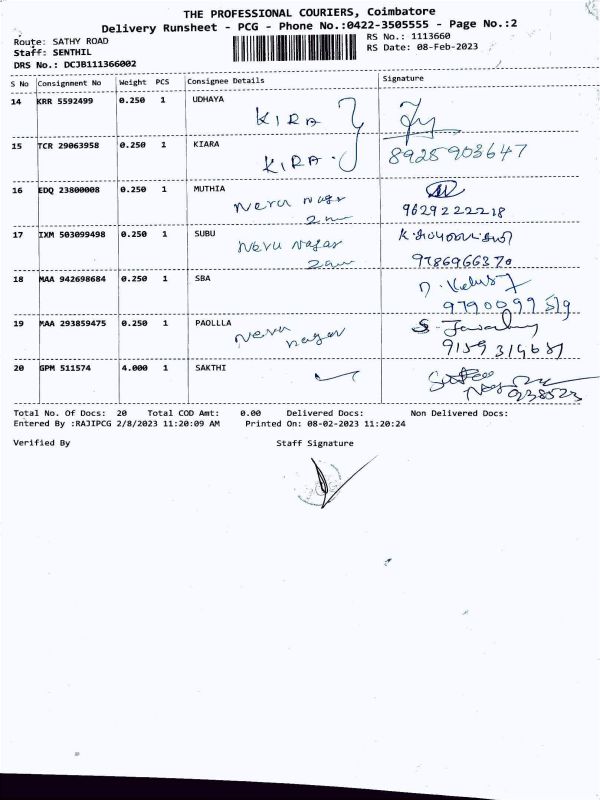 THE PROFESSIONAL COURIERS, Coimbatore
Delivery Runsheet - PCG - Phone No.:0422-3505555 - Page No.:2
Route: SATHY ROAD
RS No.: 1113660
Staff: SENTHIL
RS Date: 08-Feb-2023
DRS No.: DCJB111366002
S No Consignment No Weight PCS Consignee Details Signature
14 KRR 5592499 0.250 1 UDHAYA
KIRA
15 TCR 29063958 0.250 1 KIARA
KIRA. 8925903647
16 EDQ 23800008 0.250 1 MUTHIA
Neru Nagr 9629222218
17 IXM 503099498 0.250 1 SUBU
Neru Nagar 9786966370
18 MAA 942698684 0.250 1 SBA
9790099519
19 MAA 293859475 0.250 1 PAOLLLA
Neru nagar
20 GPM 511574 4.000 1 SAKTHI
Total No. Of Docs: 20 Total COD Amt: 0.00 Delivered Docs: Non Delivered Docs:
Entered By :RAJIPCG 2/8/2023 11:20:09 AM Printed On: 08-02-2023 11:20:24
Verified By Staff Signature